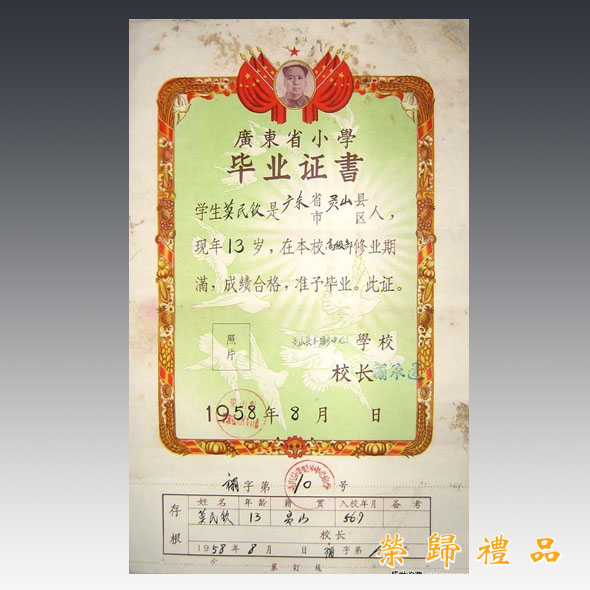 廣東省小學
毕业证書
学生莫民钦是广东省市灵山县区人，
现年13岁，在本校高级部修业期
满，成绩合格，准予毕业。此证。
照片
學校
校长
1958年8月 日
字第10号
存根
姓名 年龄 籍贯 入校年月 备考
莫民钦 13 灵山 569
校长
1958年8月 日 字第
装订线
榮歸禮品